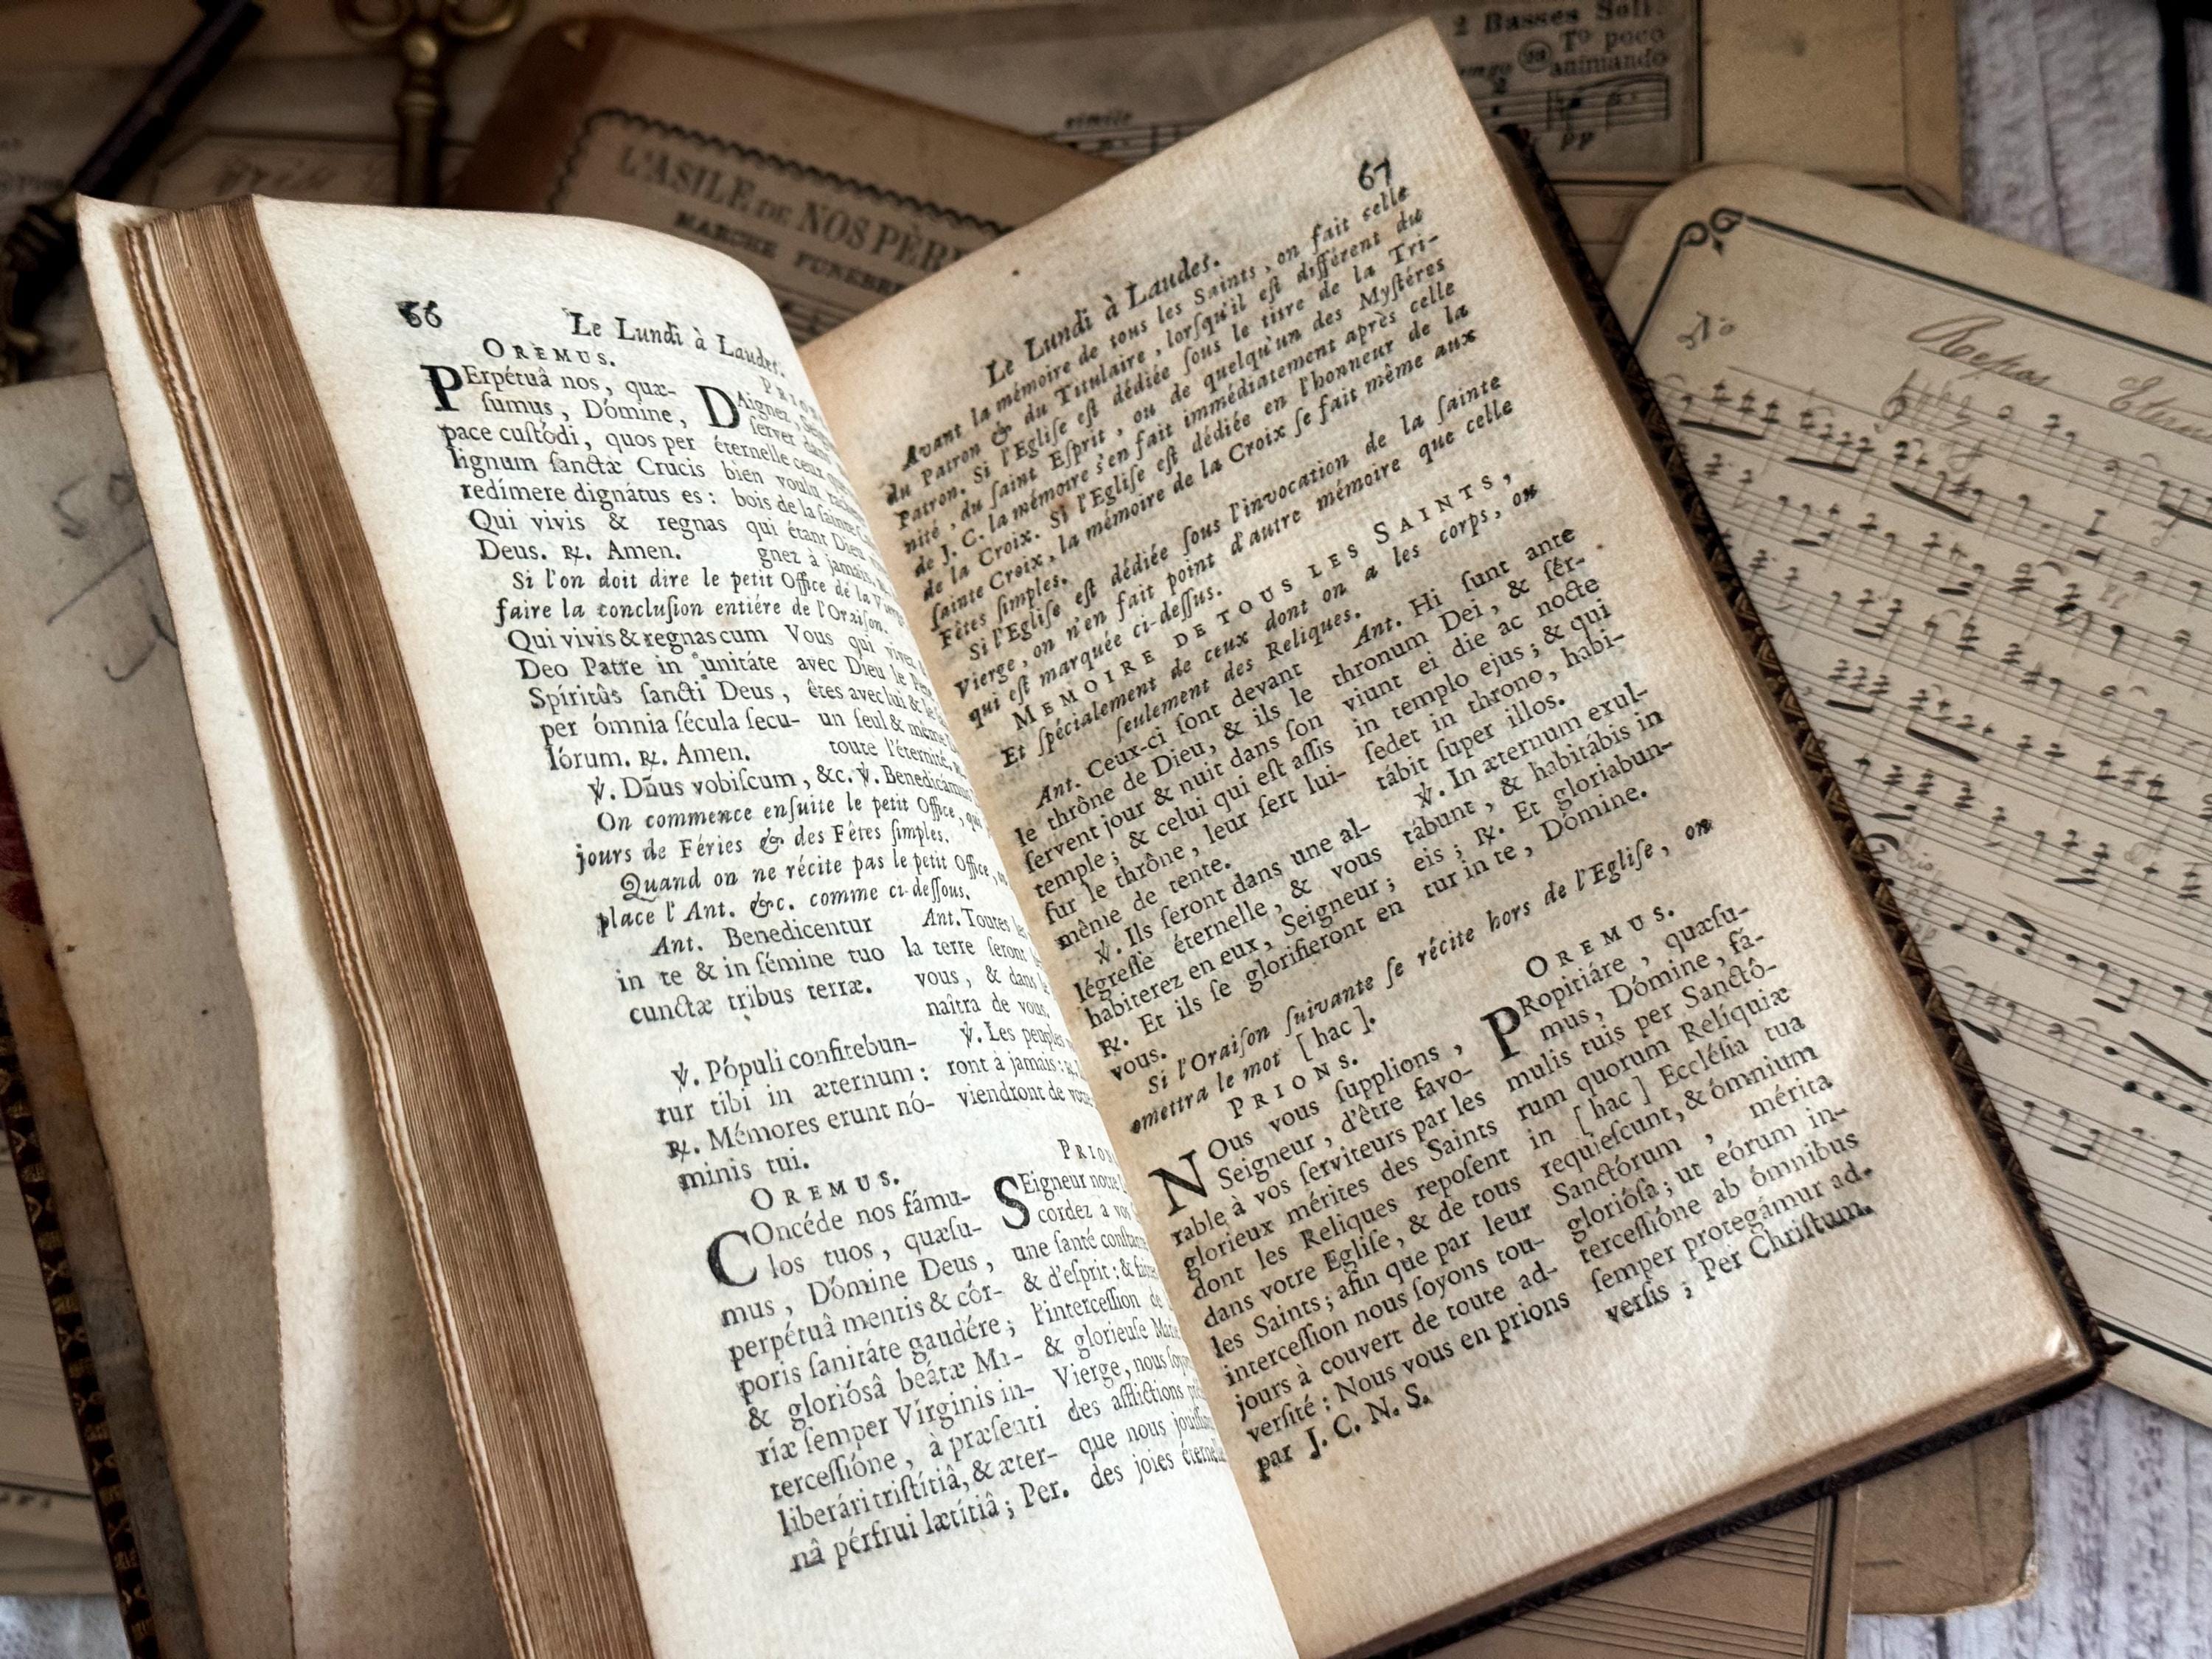 2 Basses Soli.
Tº poco
animando
simile
pp
L'ASILE DE NOS PÈRE
MARCHE FUNÈBRE
Nº
Repos
66
Le Lundi à Laudes.
OREMUS.
PErpétuâ nos, quæ-
ſumus, Dómine,
pace cuſtódi, quos per
lignum ſanctæ Crucis
redímere dignátus es :
Qui vivis & regnas
Deus. ℟. Amen.
PRIO
DAignez,
ſerver dans
éternelle ceux que
bien voulu
bois de la ſainte
qui étant Dieu
gnez à jamais,
Si l'on doit dire le petit Office dé la Vierge
faire la concluſion entiére de l'Oraiſon.
Qui vivis & regnas cum
Deo Patre in unitáte
Spíritûs ſancti Deus,
per ómnia ſécula ſecu-
lórum. ℟. Amen.
Vous qui vivez
avec Dieu le Pere
êtes avec lui & le
un ſeul & même
toute l'éternité,
℣. Dñus vobiſcum, &c. ℣. Benedicámus
On commence enſuite le petit Office, qui
jours de Féries & des Fêtes ſimples.
Quand on ne récite pas le petit Office, on
place l'Ant. &c. comme ci-deſſous.
Ant. Benedicentur
in te & in ſémine tuo
cunctæ tribus terræ.
Ant. Toutes les
la terre ſeront
vous, & dans
naîtra de vous.
℣. Pópuli confitebun-
tur tibi in æternum :
℟. Mémores erunt nó-
minis tui.
℣. Les peuples
ront à jamais :
viendront de votre
OREMUS.
COncéde nos fámu-
los tuos, quæſu-
mus, Dómine Deus,
perpétuâ mentis & cór-
poris ſanitáte gaudére ;
& glorióſâ beátæ Ma-
ríæ ſemper Vírginis in-
terceſſióne, à præſenti
liberári triſtítiâ, & æter-
nâ pérfrui lætítiâ ; Per.
PRION
SEigneur notre
cordez à vos
une ſanté conſtante
& d'eſprit ; & faites
l'interceſſion de
& glorieuſe Marie
Vierge, nous ſoyons
des afflictions
que nous jouiſſions
des joies éternelles
67
Le Lundi à Laudes.
Avant la mémoire de tous les Saints, on fait celle
du Patron & du Titulaire, lorſqu'il eſt différent du
Patron. Si l'Egliſe eſt dédiée ſous le titre de la Tri-
nité, du ſaint Eſprit, ou de quelqu'un des Myſtéres
de J. C. la mémoire s'en fait immédiatement après celle
de la Croix. Si l'Egliſe eſt dédiée en l'honneur de la
ſainte Croix, la mémoire de la Croix ſe fait même aux
Fêtes ſimples.
Si l'Egliſe eſt dédiée ſous l'invocation de la ſainte
Vierge, on n'en fait point d'autre mémoire que celle
qui eſt marquée ci-deſſus.
MEMOIRE DE TOUS LES SAINTS,
Et ſpécialement de ceux dont on a les corps, on
ſeulement des Reliques.
Ant. Ceux-ci ſont devant
le thrône de Dieu, & ils le
ſervent jour & nuit dans ſon
temple ; & celui qui eſt aſſis
ſur le thrône, leur ſert lui-
même de tente.
℣. Ils ſeront dans une al-
légreſſe éternelle, & vous
habiterez en eux, Seigneur ;
℟. Et ils ſe glorifieront en
vous.
Ant. Hi ſunt ante
thronum Dei, & ſér-
viunt ei die ac nocte
in templo ejus ; & qui
ſedet in throno, habi-
tábit ſuper illos.
℣. In æternum exul-
tábunt, & habitábis in
eis ; ℟. Et gloriabun-
tur in te, Dómine.
Si l'Oraiſon ſuivante ſe récite hors de l'Egliſe, on
omettra le mot [ hac ].
PRIONS.
NOus vous ſupplions,
Seigneur, d'être favo-
rable à vos ſerviteurs par les
glorieux mérites des Saints
dont les Reliques repoſent
dans votre Egliſe, & de tous
les Saints ; afin que par leur
interceſſion nous ſoyons tou-
jours à couvert de toute ad-
verſité : Nous vous en prions
par J. C. N. S.
OREMUS.
PRopitiáre, quæſu-
mus, Dómine, fá-
mulis tuis per Sanctó-
rum quorum Relíquiæ
in [ hac ] Eccléſia tua
requieſcunt, & ómnium
Sanctórum, mérita
glorióſa ; ut eórum in-
terceſſióne ab ómnibus
ſemper protegámur ad-
verſis ; Per Chriſtum.